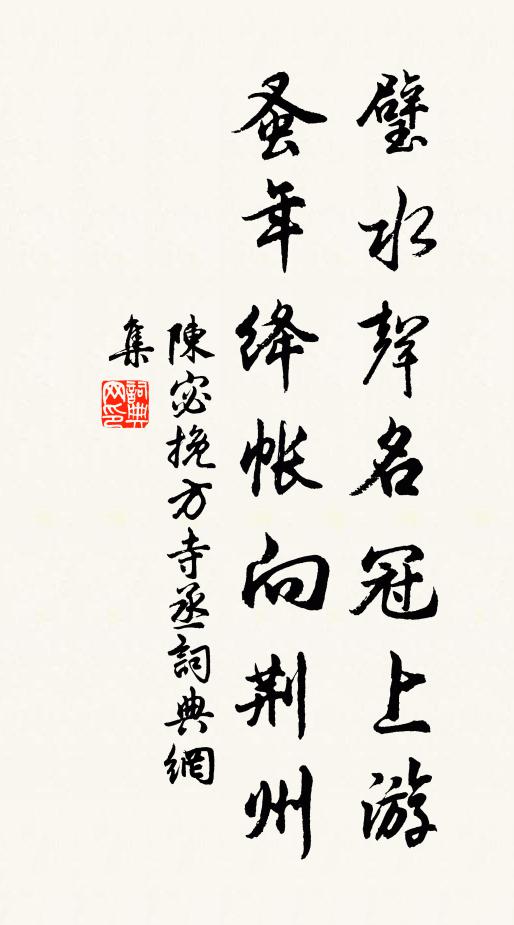 璧水聲名冠上游
蚤年絳帳向荆州
陳宓挽方寺丞詞典網
集
詞典網印